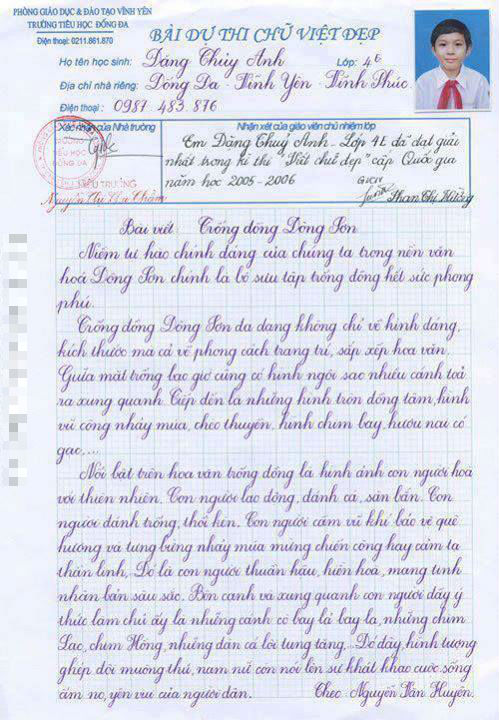 PHÒNG GIÁO DỤC & ĐÀO TẠO VĨNH YÊN
TRƯỜNG TIỂU HỌC ĐỐNG ĐA
Điện thoại: 0211.861.870
BÀI DỰ THI CHỮ VIỆT ĐẸP
Họ tên học sinh: Đặng Thuỳ Anh Lớp: 4E
Địa chỉ nhà riêng: Đống Đa - Vĩnh Yên - Vĩnh Phúc
Điện thoại: 0987 483 876
Xác nhận của Nhà trường
HIỆU TRƯỞNG
Nhận xét của giáo viên chủ nhiệm lớp
Em Đặng Thuỳ Anh - Lớp 4E đã đạt giải
nhất trong kì thi "Viết chữ đẹp" cấp Quốc gia
năm học 2005 - 2006
GVCN
Phan Thị Hường
Bài viết: Trống đồng Đông Sơn
Niềm tự hào chính đáng của chúng ta trong nền văn
hoá Đông Sơn chính là bộ sưu tập trống đồng hết sức phong
phú.
Trống đồng Đông Sơn đa dạng không chỉ về hình dáng,
kích thước mà cả về phong cách trang trí, sắp xếp hoa văn.
Giữa mặt trống bao giờ cũng có hình ngôi sao nhiều cánh toả
ra xung quanh. Tiếp đến là những hình tròn đồng tâm, hình
vũ công nhảy múa, chèo thuyền, hình chim bay, hươu nai có
gạc,...
Nổi bật trên hoa văn trống đồng là hình ảnh con người hoà
với thiên nhiên. Con người lao động, đánh cá, săn bắn. Con
người đánh trống, thổi kèn. Con người cầm vũ khí bảo vệ quê
hương và tưng bừng nhảy múa mừng chiến công hay cảm tạ
thần linh, Đó là con người thuần hậu, hiền hoà, mang tính
nhân bản sâu sắc. Bên cạnh và xung quanh con người đầy ý
thức làm chủ ấy là những cánh cò bay lả bay la, những chim
Lạc, chim Hồng, những đàn cá lội tung tăng,... Đó đây, hình tượng
ghép đôi muông thú, nam nữ còn nói lên sự khát khao cuộc sống
ấm no, yên vui của người dân. Theo: Nguyễn Văn Huyên.